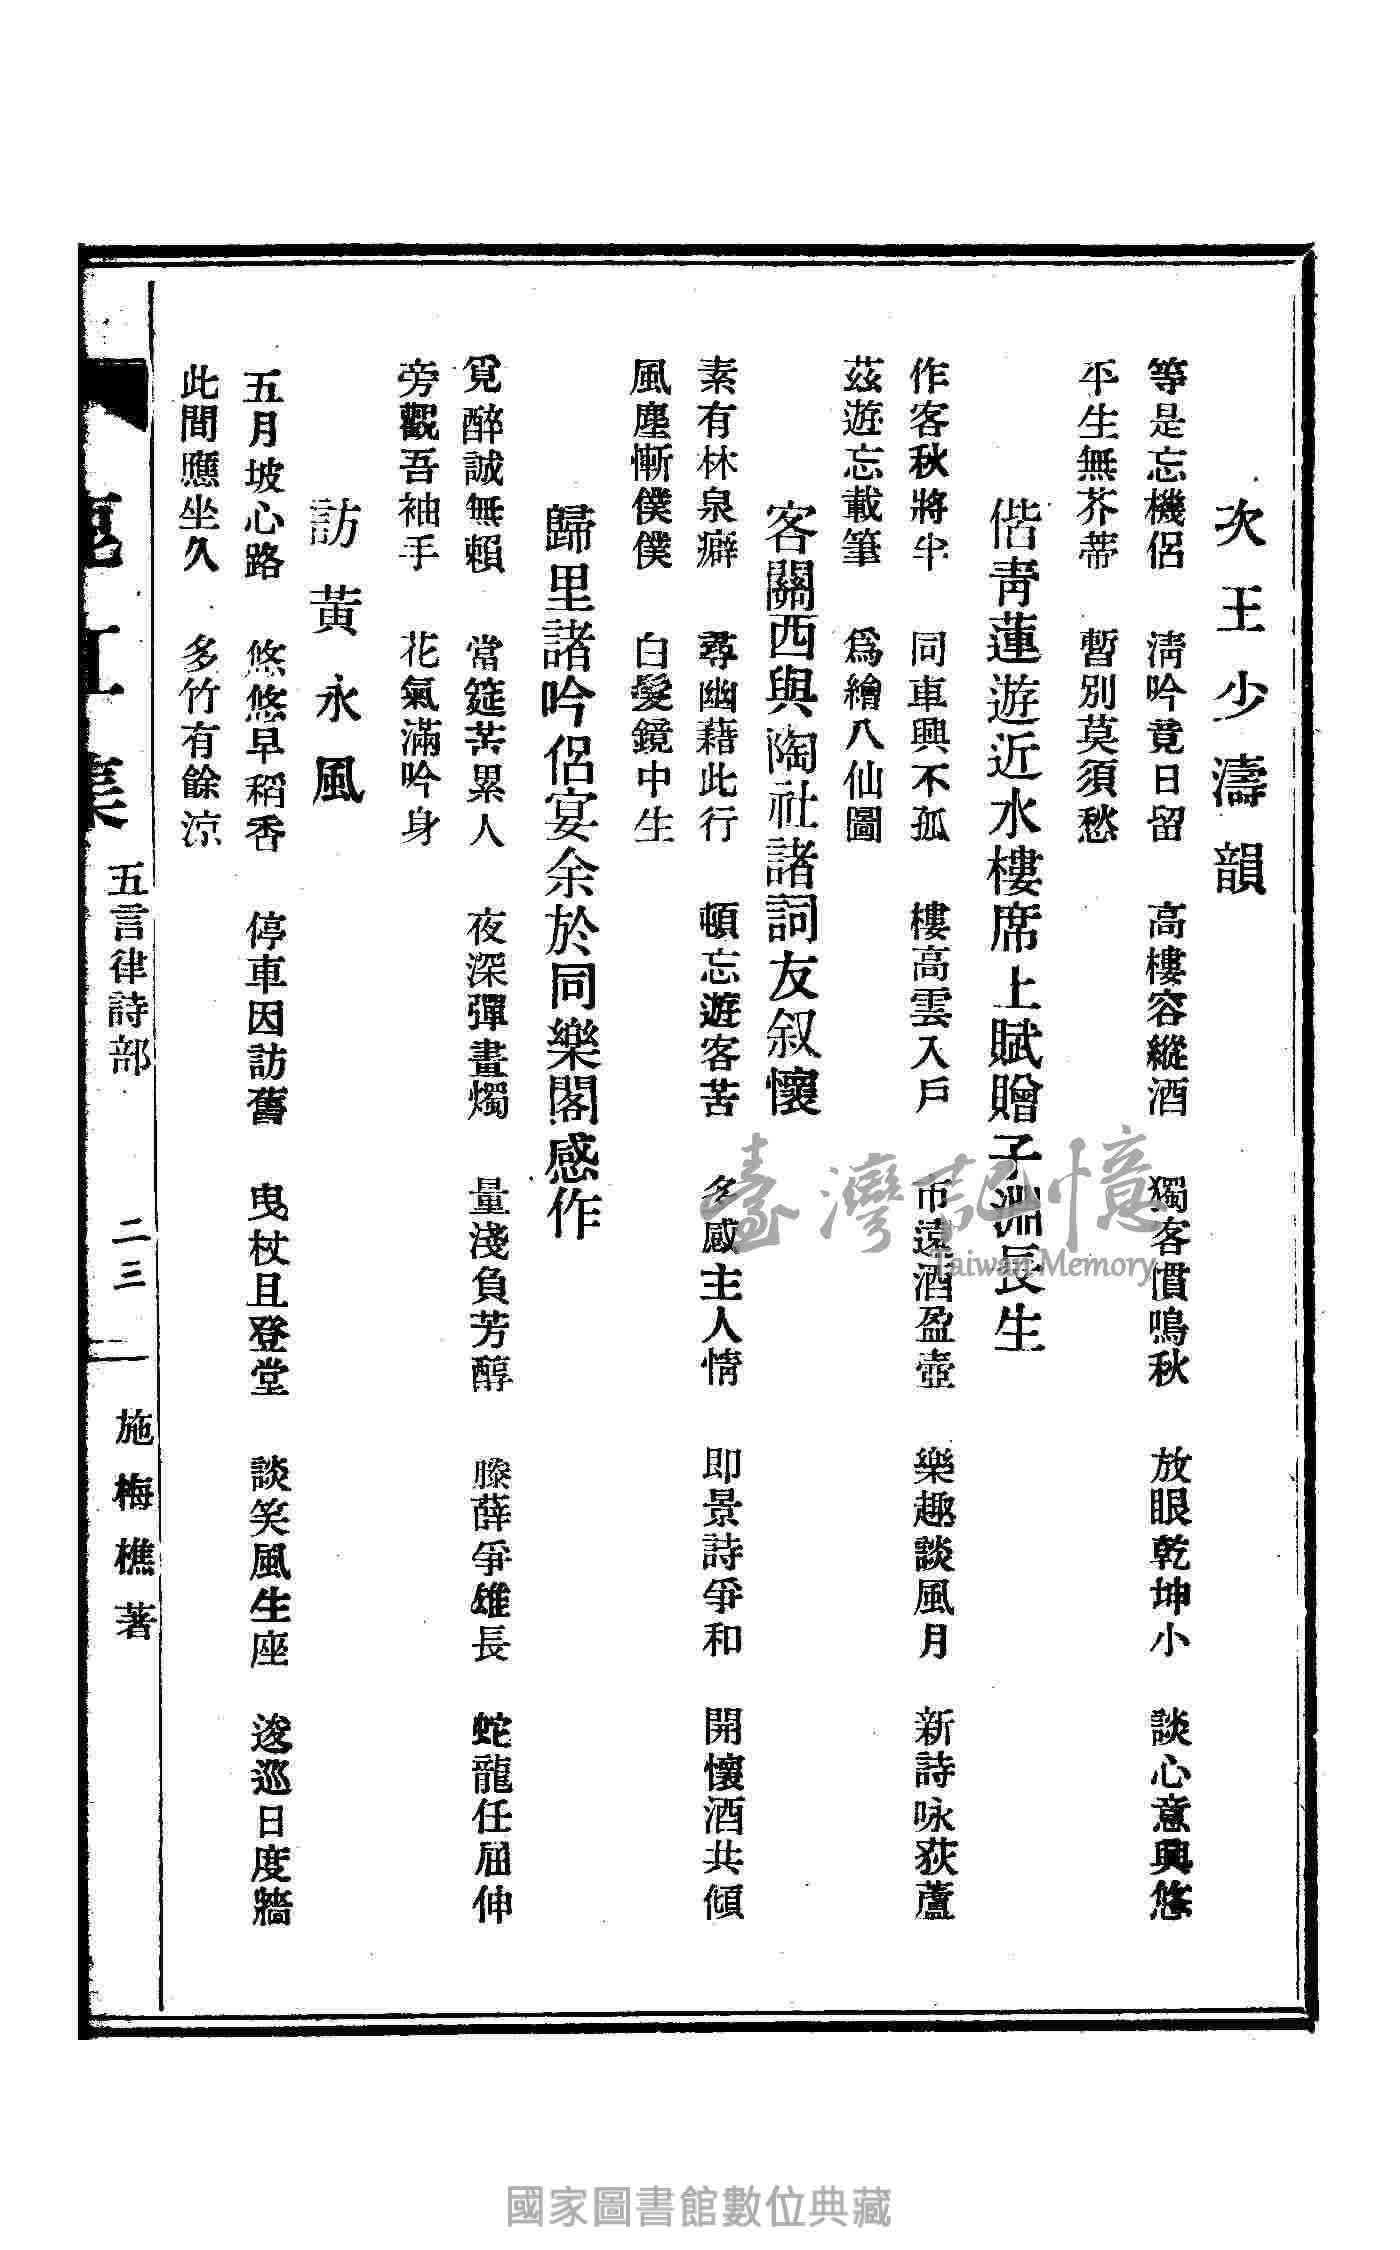 次王少濤韻
等是忘機侶　清吟竟日留　高樓容縱酒　獨客慣鳴秋　放眼乾坤小　談心意興悠
平生無芥蒂　暫別莫須愁
偕青蓮遊近水樓席上賦贈子淵長生
作客秋將半　同車興不孤　樓高雲入戶　市遠酒盈壺　樂趣談風月　新詩咏荻蘆
茲遊忘載筆　爲繪八仙圖
客關西與陶社諸詞友叙懷
素有林泉癖　尋幽藉此行　頓忘遊客苦　多感主人情　即景詩爭和　開懷酒共傾
風塵慚僕僕　白髮鏡中生
歸里諸吟侶宴余於同樂閣感作
覓醉誠無賴　當筵苦累人　夜深彈畫燭　量淺負芳醇　滕薛爭雄長　蛇龍任屈伸
旁觀吾袖手　花氣滿吟身
訪黃永風
五月坡心路　悠悠早稻香　停車因訪舊　曳杖且登堂　談笑風生座　逡巡日度牆
此間應坐久　多竹有餘涼
集　五言律詩部　二三　施梅樵著
臺灣記憶
Taiwan Memory
國家圖書館數位典藏